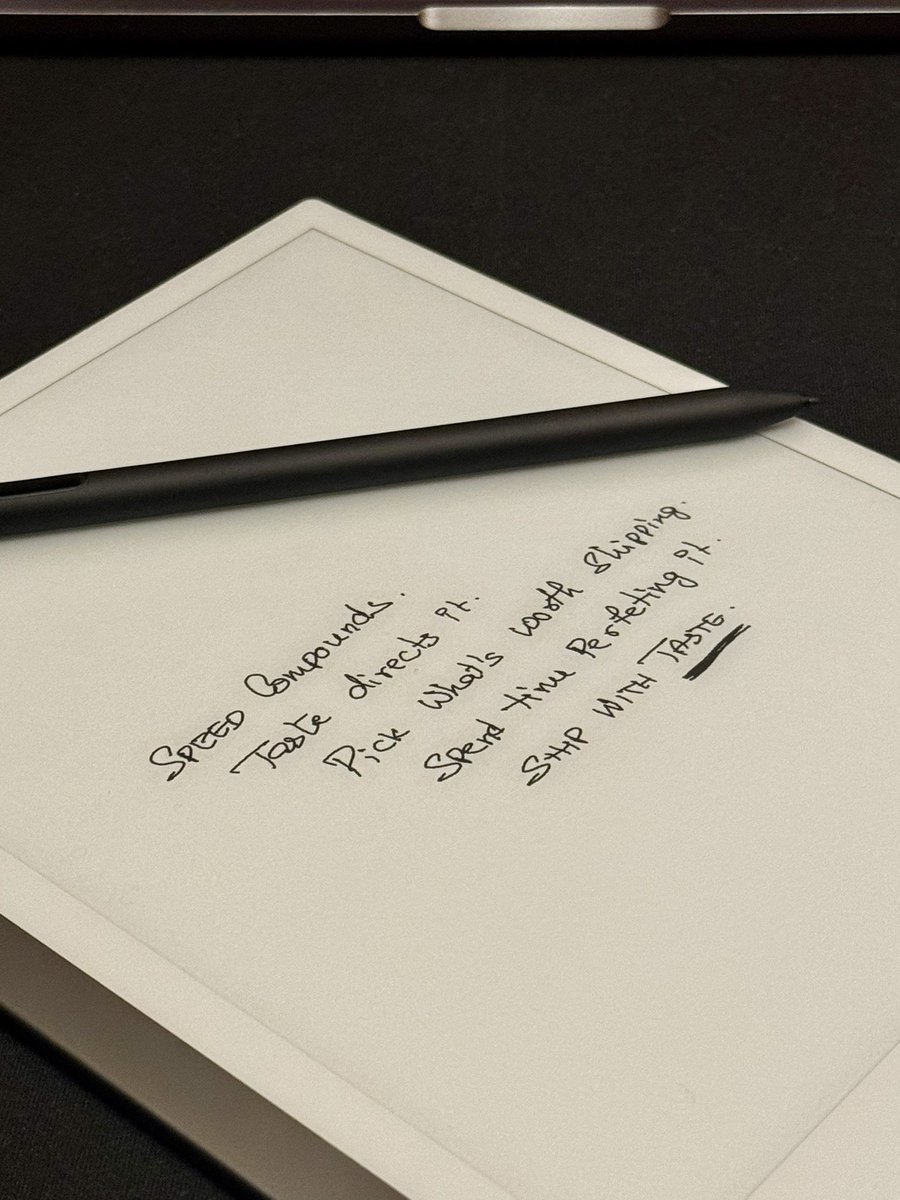 SPEED Compounds.
Taste directs it.
Pick What's worth Shipping.
Spend time Perfeting it.
SHIP WITH TASTE.